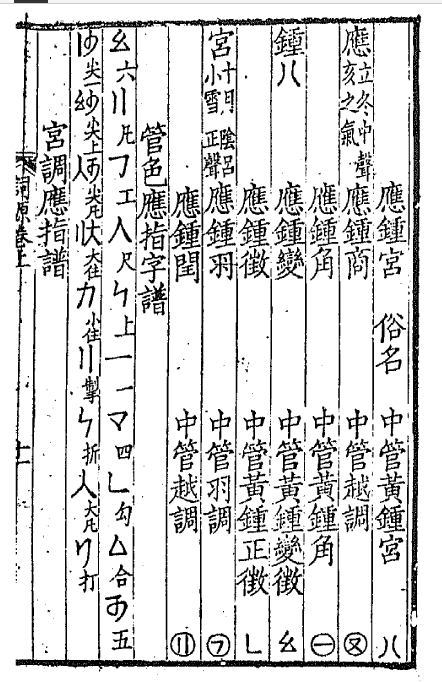 應鍾宮 俗名 中管黃鍾宮 八
應 立冬中聲 亥之氣 應鍾商 中管越調 ㊅
應鍾角 中管黃鍾角 ㊀
鍾八 應鍾變 中管黃鍾變徵 幺
應鍾徵 中管黃鍾正徵 ㄴ
宮 十月 陰呂 小雪 正聲 應鍾羽 中管羽調 ㋫
應鍾閏 中管越調
管色應指字譜
幺六 〢凡 フ工 人尺 ㄣ上 一一 マ四 ㄴ勾 厶合 五
尖一 尖上 尖凡 大住 小住 掣 折 大凡 打
宮調應指譜
詞源卷上 十一